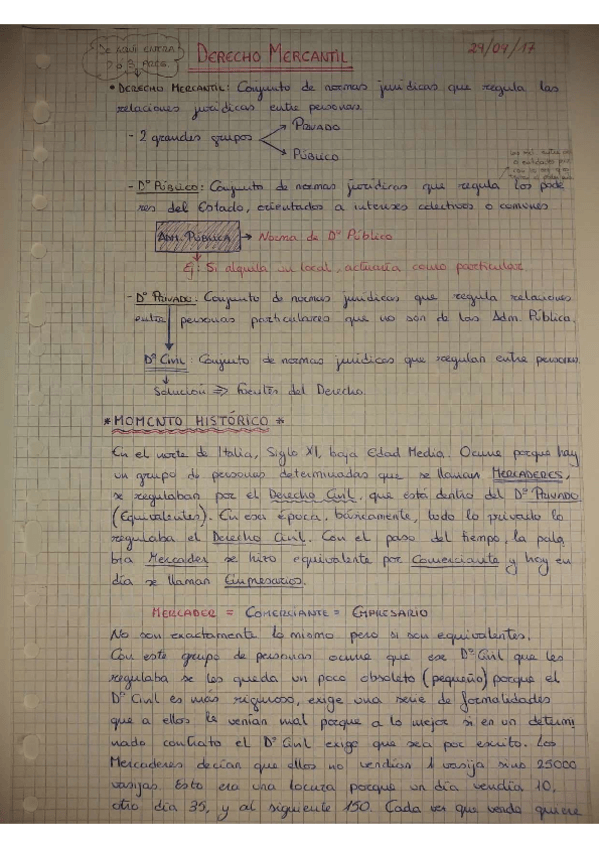 De aquí entran
2 o 3 pregs.
DERECHO MERCANTIL
29/09/17
• DERECHO MERCANTIL: Conjunto de normas jurídicas que regula las
relaciones jurídicas entre personas.
- 2 grandes grupos → PRIVADO
→ PÚBLICO
- Dº PÚBLICO: Conjunto de normas jurídicas que regula los pode
res del Estado, orientados a intereses colectivos o comunes
ADM. PÚBLICA → Norma de Dº Público
Ej: Si alquila un local, actuaría como particular
- Dº PRIVADO: Conjunto de normas jurídicas que regula relaciones
entre personas particulares que no son de las Adm. Pública.
Dº CIVIL: Conjunto de normas jurídicas que regulan entre personas
Solución ⇒ Fuentes del Derecho.
* MOMENTO HISTÓRICO *
En el norte de Italia, Siglo XI, baja Edad Media. Ocurre porque hay
un grupo de personas determinadas que se llaman MERCADERES,
se regulaban por el Derecho Civil, que está dentro del Dº PRIVADO
(Equivalentes). En esa época, básicamente, todo lo privado lo
regulaba el Derecho Civil. Con el paso del tiempo, la pala
bra Mercader se hizo equivalente por Comerciante y hoy en
día se llaman Empresarios.
MERCADER = COMERCIANTE = EMPRESARIO
No son exactamente lo mismo pero si son equivalentes.
Con este grupo de personas ocurre que ese Dº Civil que les
regulaba se les queda un poco obsoleto (pequeño) porque el
Dº Civil es más riguroso, exige una serie de formalidades
que a ellos le venían mal porque a lo mejor si en un determi
nado contrato el Dº Civil exige que sea por escrito. Los
Mercaderes decían que ellos no vendían 1 vasija sino 25000
vasijas. Esto era una locura porque un día vendía 10,
otro día 35, y al siguiente 150. Cada vez que venda quiere